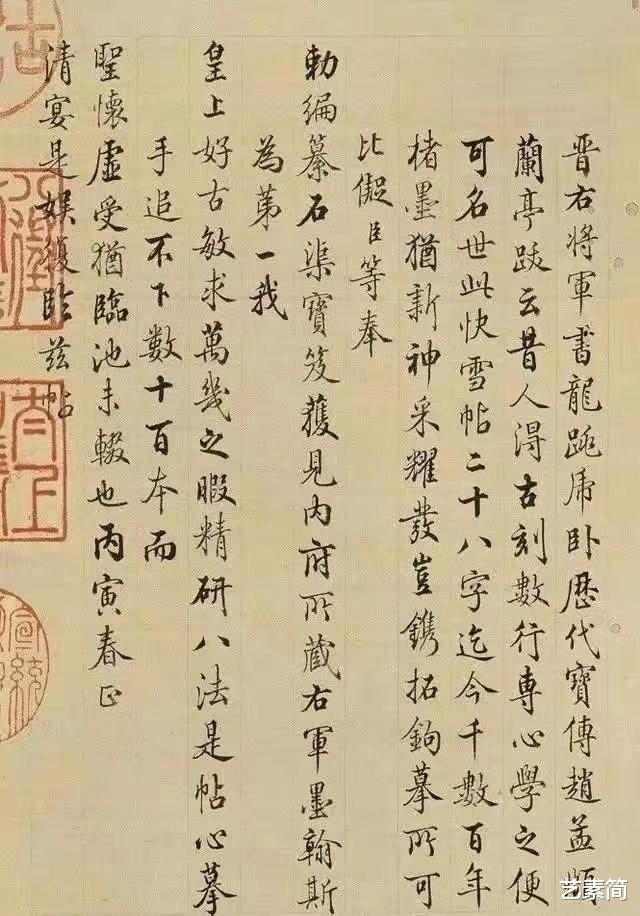 晋右将軍書龍跳虎卧歷代寶傳趙孟頫
蘭亭跋云昔人得古刻數行專心學之便
可名世此快雪帖二十八字迄今千數百年
楮墨猶新神采耀發豈鐫拓鉤摹所可
比儗臣等奉
勅編纂石渠寶笈獲見内府所蔵右軍墨翰斯
為第一我
皇上好古敏求萬幾之暇精研八法是帖心摹
手追不下數十百本而
聖懷虛受猶臨池未輟也丙寅春正
清宴是娛復臨兹帖
宣統
艺素简